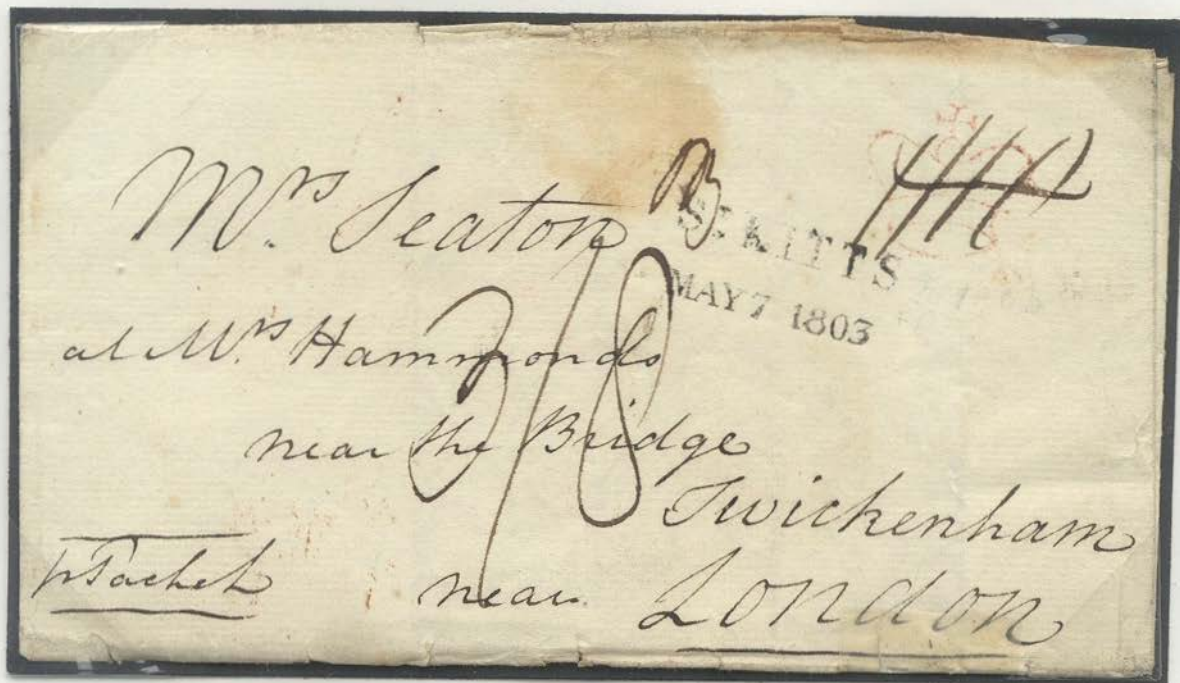 Mrs. Seaton
St. KITTS
MAY 7 1803
at Mrs Hammonds
near the Bridge
Twickenham
near London
pr Packet
2/8